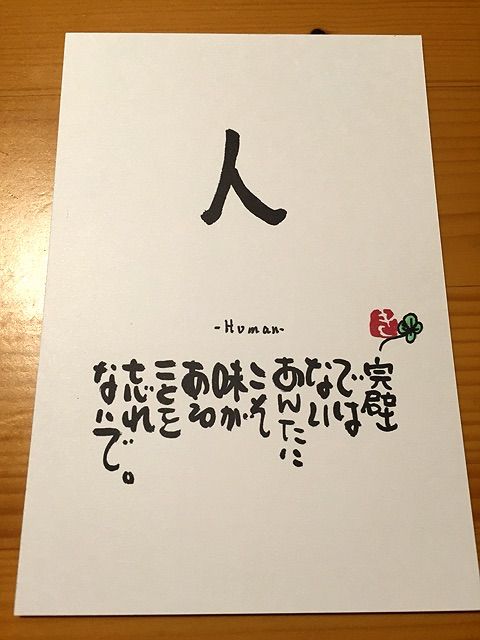 人
-Human-
完璧
では
ない
あんたに
こそ
味が
ある
ことを
忘れ
ないで。